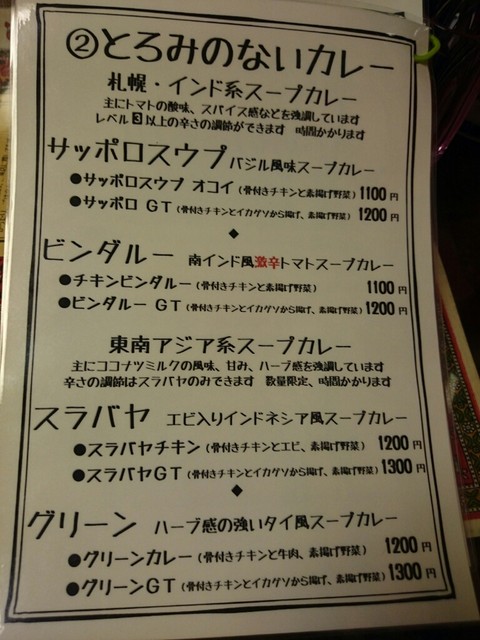 ②とろみのないカレー
札幌・インド系スープカレー
主にトマトの酸味、スパイス感などを強調しています
レベル3以上の辛さの調節ができます 時間かかります
サッポロスウプ バジル風味スープカレー
●サッポロスウプ オコイ (骨付きチキンと素揚げ野菜) 1100円
●サッポロ GT (骨付きチキンとイカゲソから揚げ、素揚げ野菜) 1200円
◆
ビンダルー 南インド風激辛トマトスープカレー
●チキンビンダルー (骨付きチキンと素揚げ野菜) 1100円
●ビンダルー GT (骨付きチキンとイカゲソから揚げ、素揚げ野菜) 1200円
東南アジア系スープカレー
主にココナツミルクの風味、甘み、ハーブ感を強調しています
辛さの調節はスラバヤのみできます 数量限定、時間かかります
スラバヤ エビ入りインドネシア風スープカレー
●スラバヤチキン (骨付きチキンとエビ、素揚げ野菜) 1200円
●スラバヤGT (骨付きチキンとイカゲソから揚げ、素揚げ野菜) 1300円
◆
グリーン ハーブ感の強いタイ風スープカレー
●グリーンカレー (骨付きチキンと牛肉、素揚げ野菜) 1200円
●グリーンGT (骨付きチキンとイカゲソから揚げ、素揚げ野菜) 1300円